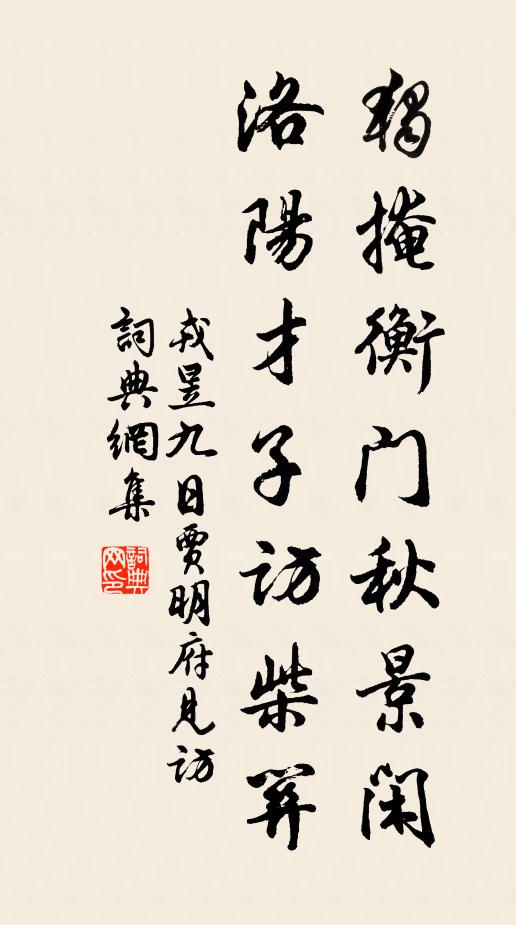 獨掩衡门秋景閑
洛陽才子訪柴關
戎昱九日賈明府見訪
詞典網集
詞典网印